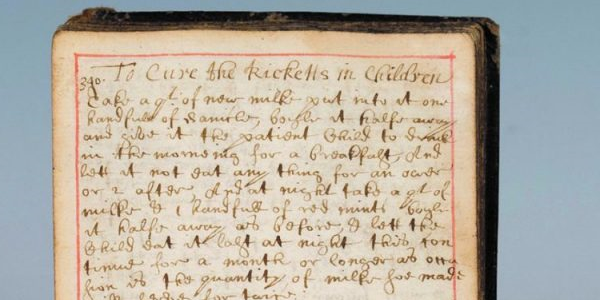 340. To Cure the Ricketts in Children
Take a qt. of new milke put into it one
handfull of Sanicle, boyle it halfe away
and give it the patient Child to drink
in the morneing for a breakfast, And
lett it not eat any thing for an ower
or 2 after, And at night take a qt of
milke & 1 handfull of red mints boyle
it halfe away as before, & lett the
Child eat it last at night this con
tinue for a month or longer as occa
sion is the quantity of milke soe made
for twice